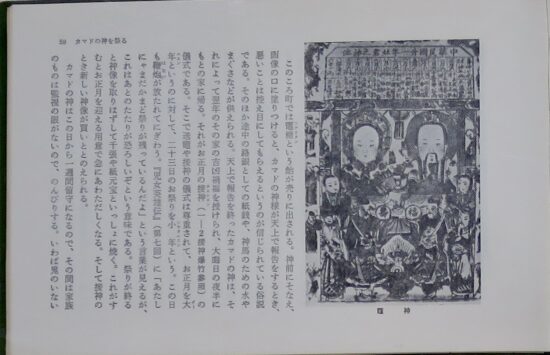 59　カマドの神を祭る
竈神
このころ町では竈糖という飴が売り出される。神前にそなえ、
画像の口に塗りつけると、カマドの神様が天上で報告をするとき、
悪いことは控え目にしてもらえるというのが信じられている俗説
である。そのほか途中の路銀としての紙銭や、神馬のための水や
まぐさなどが供えられる。天上で報告を終ったカマドの神は、そ
れによって翌年のその家の吉凶禍福を授けられ、大晦日の夜半に
もとの家に帰る。それがお正月の接神（一―2接神爆竹参照）の
儀式である。そこで送竈や接神の儀式は尊重されて、お正月を大
年というのに対して、二十三日のお祭りを小年という。この日
も鞭炮が放たれてにぎわう。『児女英雄伝』（第七回）に「あたし
にゃまだかまど祭りが残っているんだよ」という言葉が見えるが、
これはあとのたたりが恐ろしいぞという意味である。祭りが終る
と神像を取りはずして千張や紙元宝といっしょに焼く。これがす
むとお正月を迎える用意で急にあわただしくなる。そして接神の
とき新しい神像が買いととのえられる。
カマドの神はこの日から一週間留守になるので、その間は家族
のものは監視の眼がないので、のんびりする。いわば鬼のいない